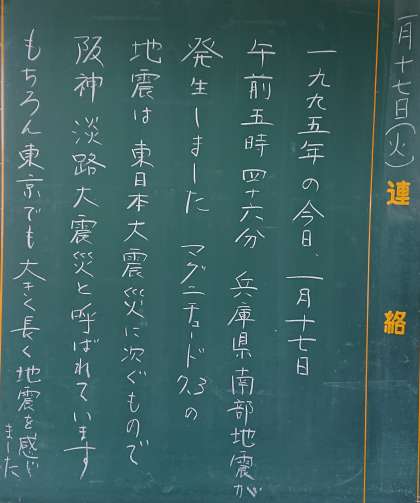 一月十七日(火)
連絡
一九九五年の今日、一月十七日
午前五時四十六分 兵庫県南部地震が
発生しました マグニチュード7.3の
地震は東日本大震災に次ぐもので
阪神淡路大震災と呼ばれています
もちろん東京でも大きく長く地震を感じ
ました